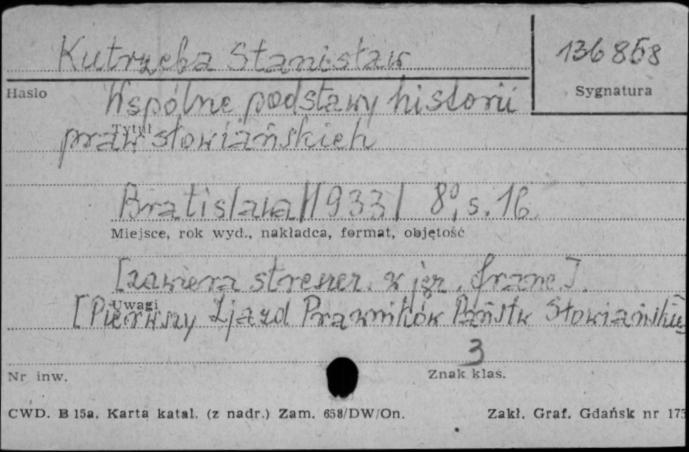 Kutrzeba Stanisław
136858
Hasło
Sygnatura
Wspólne podstawy historii
Tytuł
praw słowiańskich
Bratislava /1933/ 8°, s. 16
Miejsce, rok wyd., nakładca, format, objętość
[zawiera streszcz. w jęz. franc].
Uwagi
[Pierwszy Zjazd Prawników Państw Słowiańskich
3
Nr inw.
Znak klas.
CWD. B 15a. Karta katal. (z nadr.) Zam. 658/DW/On.
Zakł. Graf. Gdańsk nr 175